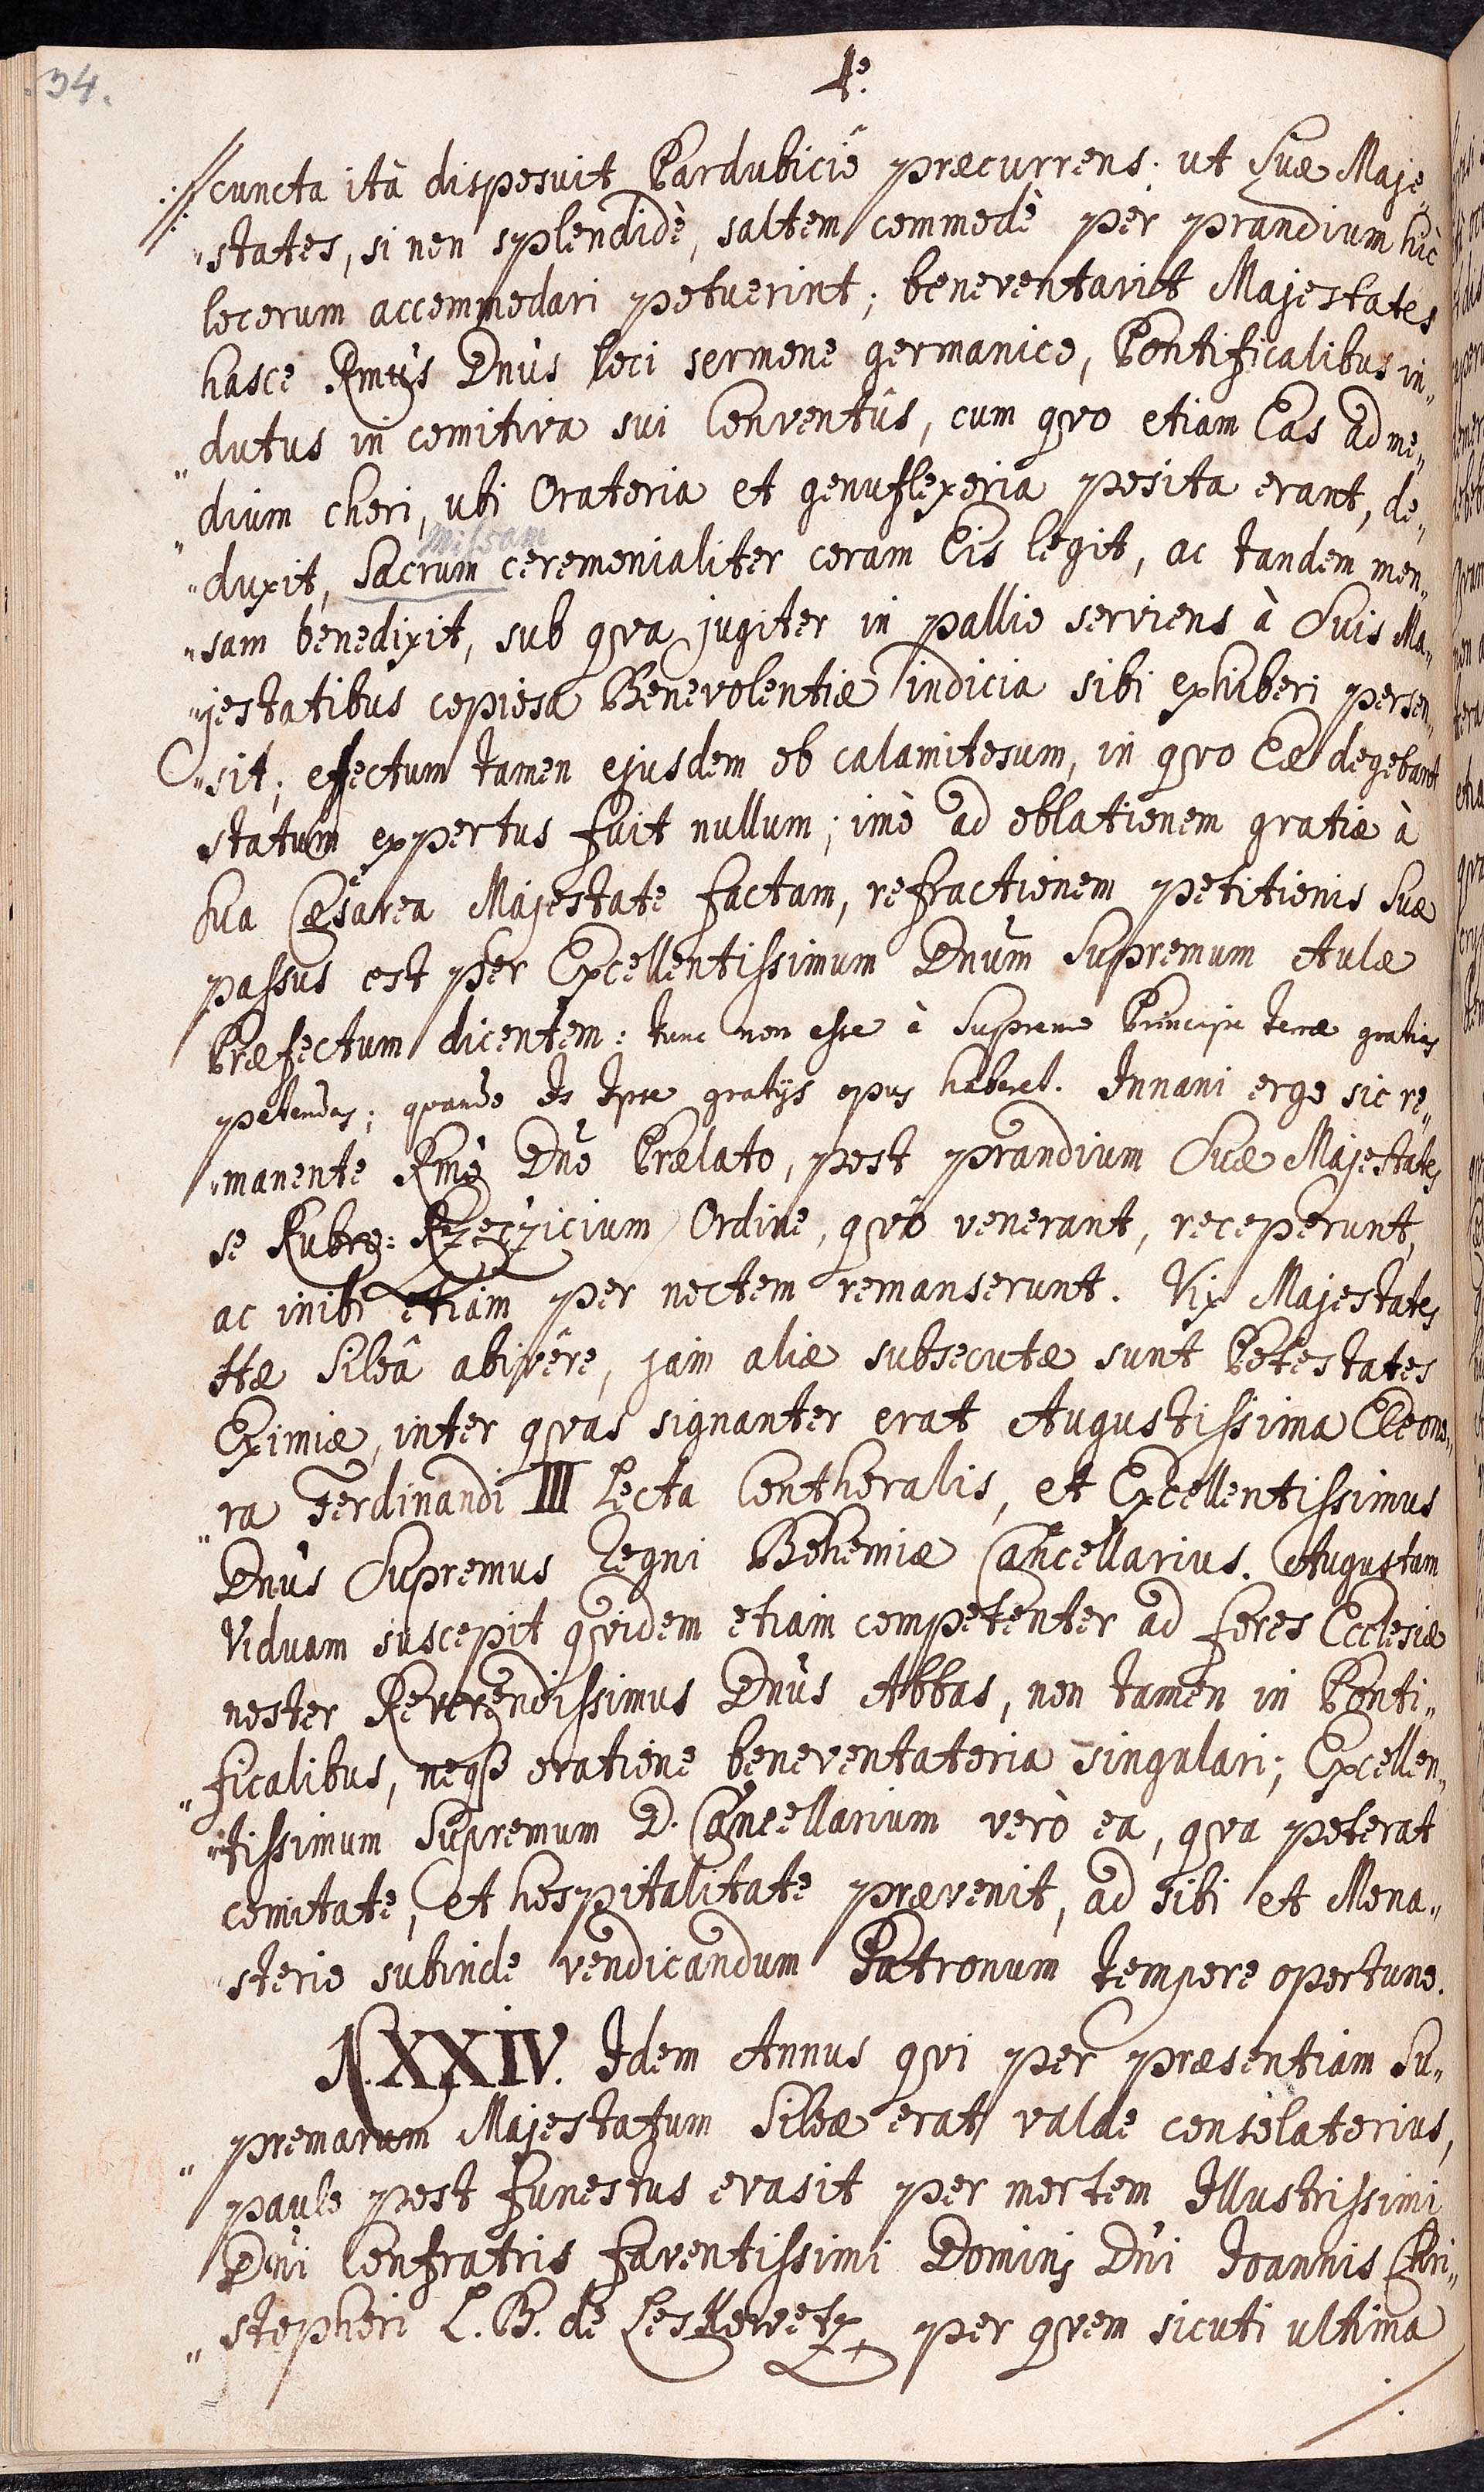 34.
4º.
cuncta ità disposuit Pardubiciô præcurrens. ut Suæ Maje„
„states, si non splendidè, saltem commodè per prandium hìc
locorum accommodari potuerint; beneventavit Majestates
hasce Rmûs Dnûs loci sermone germanico, Pontificalibus in„
„dutus in comitiva sui Conventûs, cum qvo etiam Eas ad me„
„dium chori, ubi Oratoria et genuflexoria posita erant, de„
Missam
„duxit, Sacrum ceremonialiter coram Eis legit, ac tandem men„
„sam benedixit, sub qva jugiter in pallio serviens à Suis Ma„
„jestatibus copiosa Benevolentiæ indicia sibi exhiberi persen„
„sit; efectum tamen ejusdem ob calamitosum, in qvo Eæ degebant
statum expertus fuit nullum; imò ad oblationem gratiæ à
Sua Cæsarea Majestate factam, refractionem petitionis Suæ
passus est per Excellentissimum Dnum Supremum Aulæ
Præfectum dicentem: tunc non esse à Supremo Principe terræ gratias
petendas; quando Is Ipse gratijs opus haberet. Innani ergo sic re„
„manente Rmô Dnô Prælato, post prandium Suæ Majestates
se Rubro: Rzeczicium Ordine, qvô venerant, receperunt,
ac inibi etiam per noctem remanserunt. Vix Majestates
Hæ Siloâ abivêre, jam aliæ subsecutæ sunt Potestates
Eximiæ, inter qvas signanter erat Augustissima Eleono„
„ra Ferdinandi III Lecta Conthoralis, et Excellentissimus
Dnûs Supremus Regni Bohemiæ Cancellarius. Augustam
Viduam suscepit qvidem etiam competenter ad fores Ecclesiæ
noster Reverendissimus Dnûs Abbas, non tamen in Ponti„
„ficalibus, neqȝ oratione beneventatoria singulari; Excellen„
„tissimum Supremum D. Cancellarium verò ea, qva poterat
comitate, et hospitalitate prævenit, ad sibi et Mona„
„sterio subinde vendicandum Patronum tempore oportuno.
N. XXXIV. Idem Annus qvi per præsentiam Su„
„premarum Majestatum Siloæ erat valde consolatorius,
paulo post funestus evasit per mortem Illustrissimi
Dnî Confratris faventissimi Domini Dnî Joannis Chri„
„stophori L. B. de Leskowetz, per qvem sicuti ultima